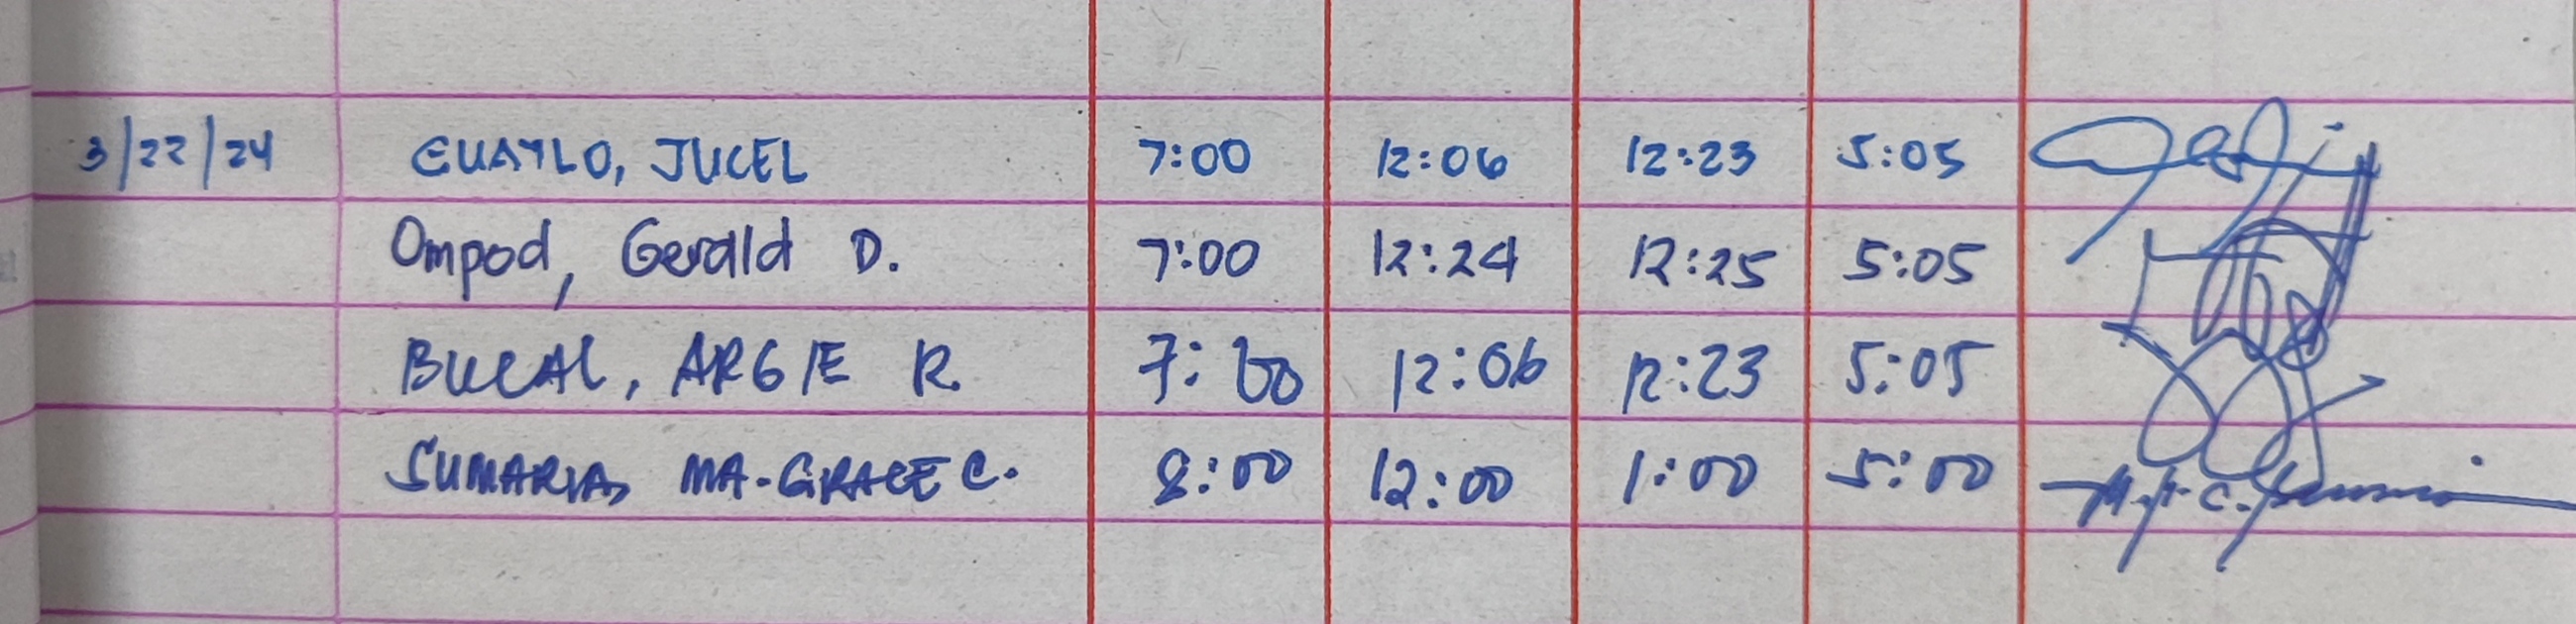 3/22/24 GUAYLO, JUCEL 7:00 12:06 12:23 5:05
Ompod, Gerald D. 7:00 12:24 12:25 5:05
BUCAL, ARGIE R. 7:00 12:06 12:23 5:05
SUMARIA, MA. GRACE C. 8:00 12:00 1:00 5:00